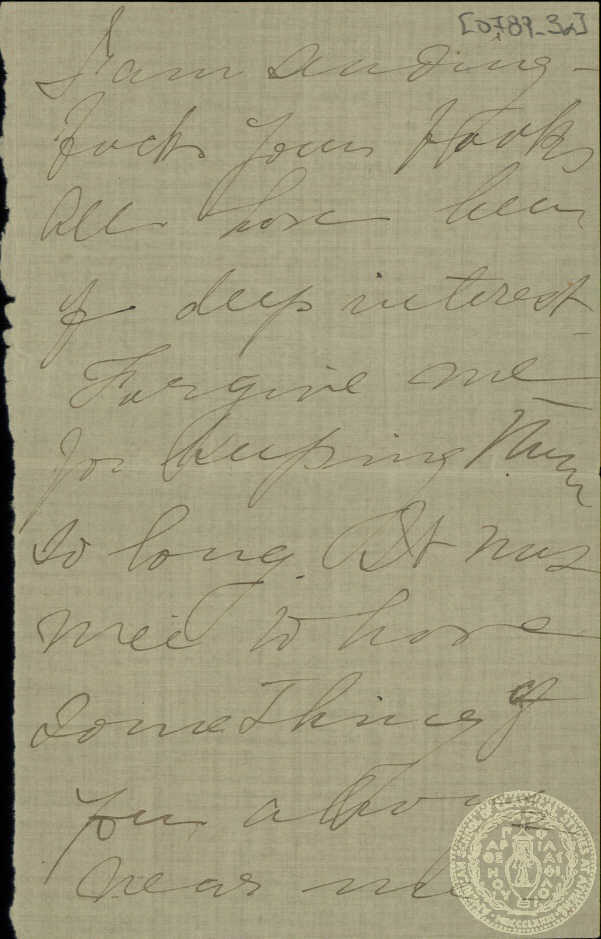 [0789_3a]
I am sending
back your books
All have been
of deep interest
Forgive me
for keeping them
so long. It was
nice to have
something of
you always
near me